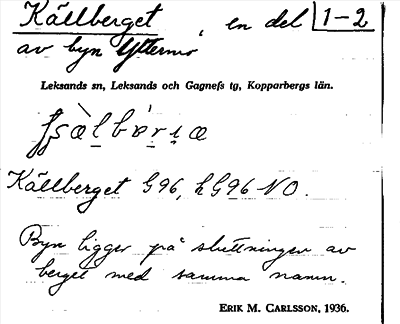 Källberget, en del 1-2
av byn Yttermo
Leksands sn, Leksands och Gagnefs tg, Kopparbergs län.
Källberget G96, LG96 NO.
Byn ligger på sluttningen av
berget med samma namn.
ERIK M. CARLSSON, 1936.